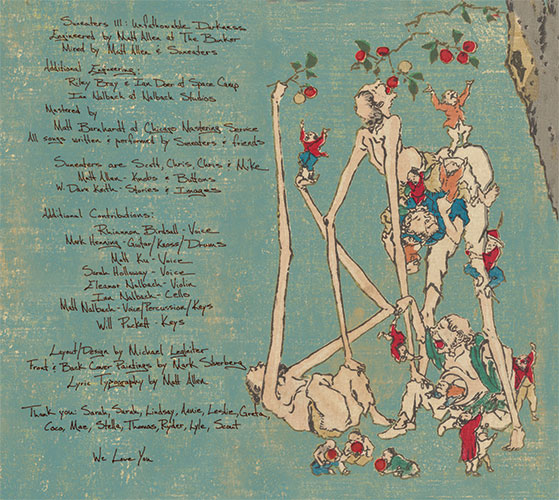 Suneaters III: Unfathomable Darkness
Engineered by Matt Allen at The Bunker
Mixed by Matt Allen & Suneaters
Additional Engineering:
Riley Bray & Ian Doerr at Space Camp
Ian Nalbach at Nalbach Studios
Mastered by
Matt Barnhardt at Chicago Mastering Service
All songs written & performed by Suneaters & friends
Suneaters are Scott, Chris, Chris & Mike
Matt Allen - Knobs & Buttons
W. Dave Keith - Stories & Images
Additional Contributions:
Rhiannon Birdsall - Voice
Mark Henning - Guitar/Kaoss/Drums
Matt Ku - Voice
Sarah Holloway - Voice
Eleanor Nalbach - Violin
Ian Nalbach - Cello
Matt Nalbach - Voice/Percussion/Keys
Will Puckett - Keys
Layout/Design by Michael
Front & Back Cover Paintings by Mark
Lyric Typography by Matt Allen
Thank you: Sarah, Sarah, Lindsay, Annie, Leslie, Greta,
Coco, Mae, Stella, Thomas, Ryder, Lyle, Scout
We Love You